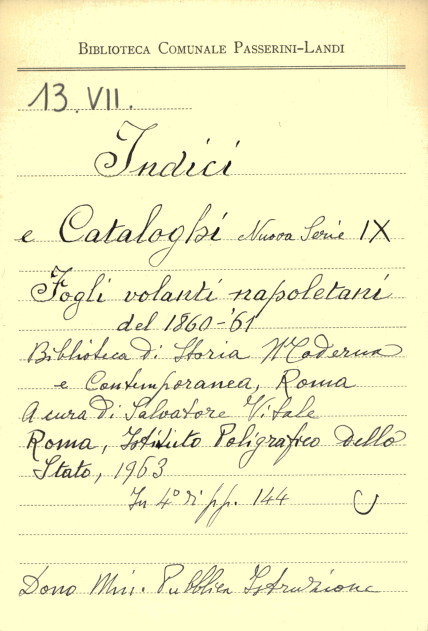 BIBLIOTECA COMUNALE PASSERINI-LANDI
13.VII.
Indici
e Cataloghi Nuova Serie IX
Fogli volanti napoletani
del 1860-'61
Biblioteca di Storia Moderna
e Contemporanea, Roma
A cura di Salvatore Vitale
Roma, Istituto Poligrafico dello
Stato, 1963
In 4° di pp. 144
Dono Min. Pubblica Istruzione